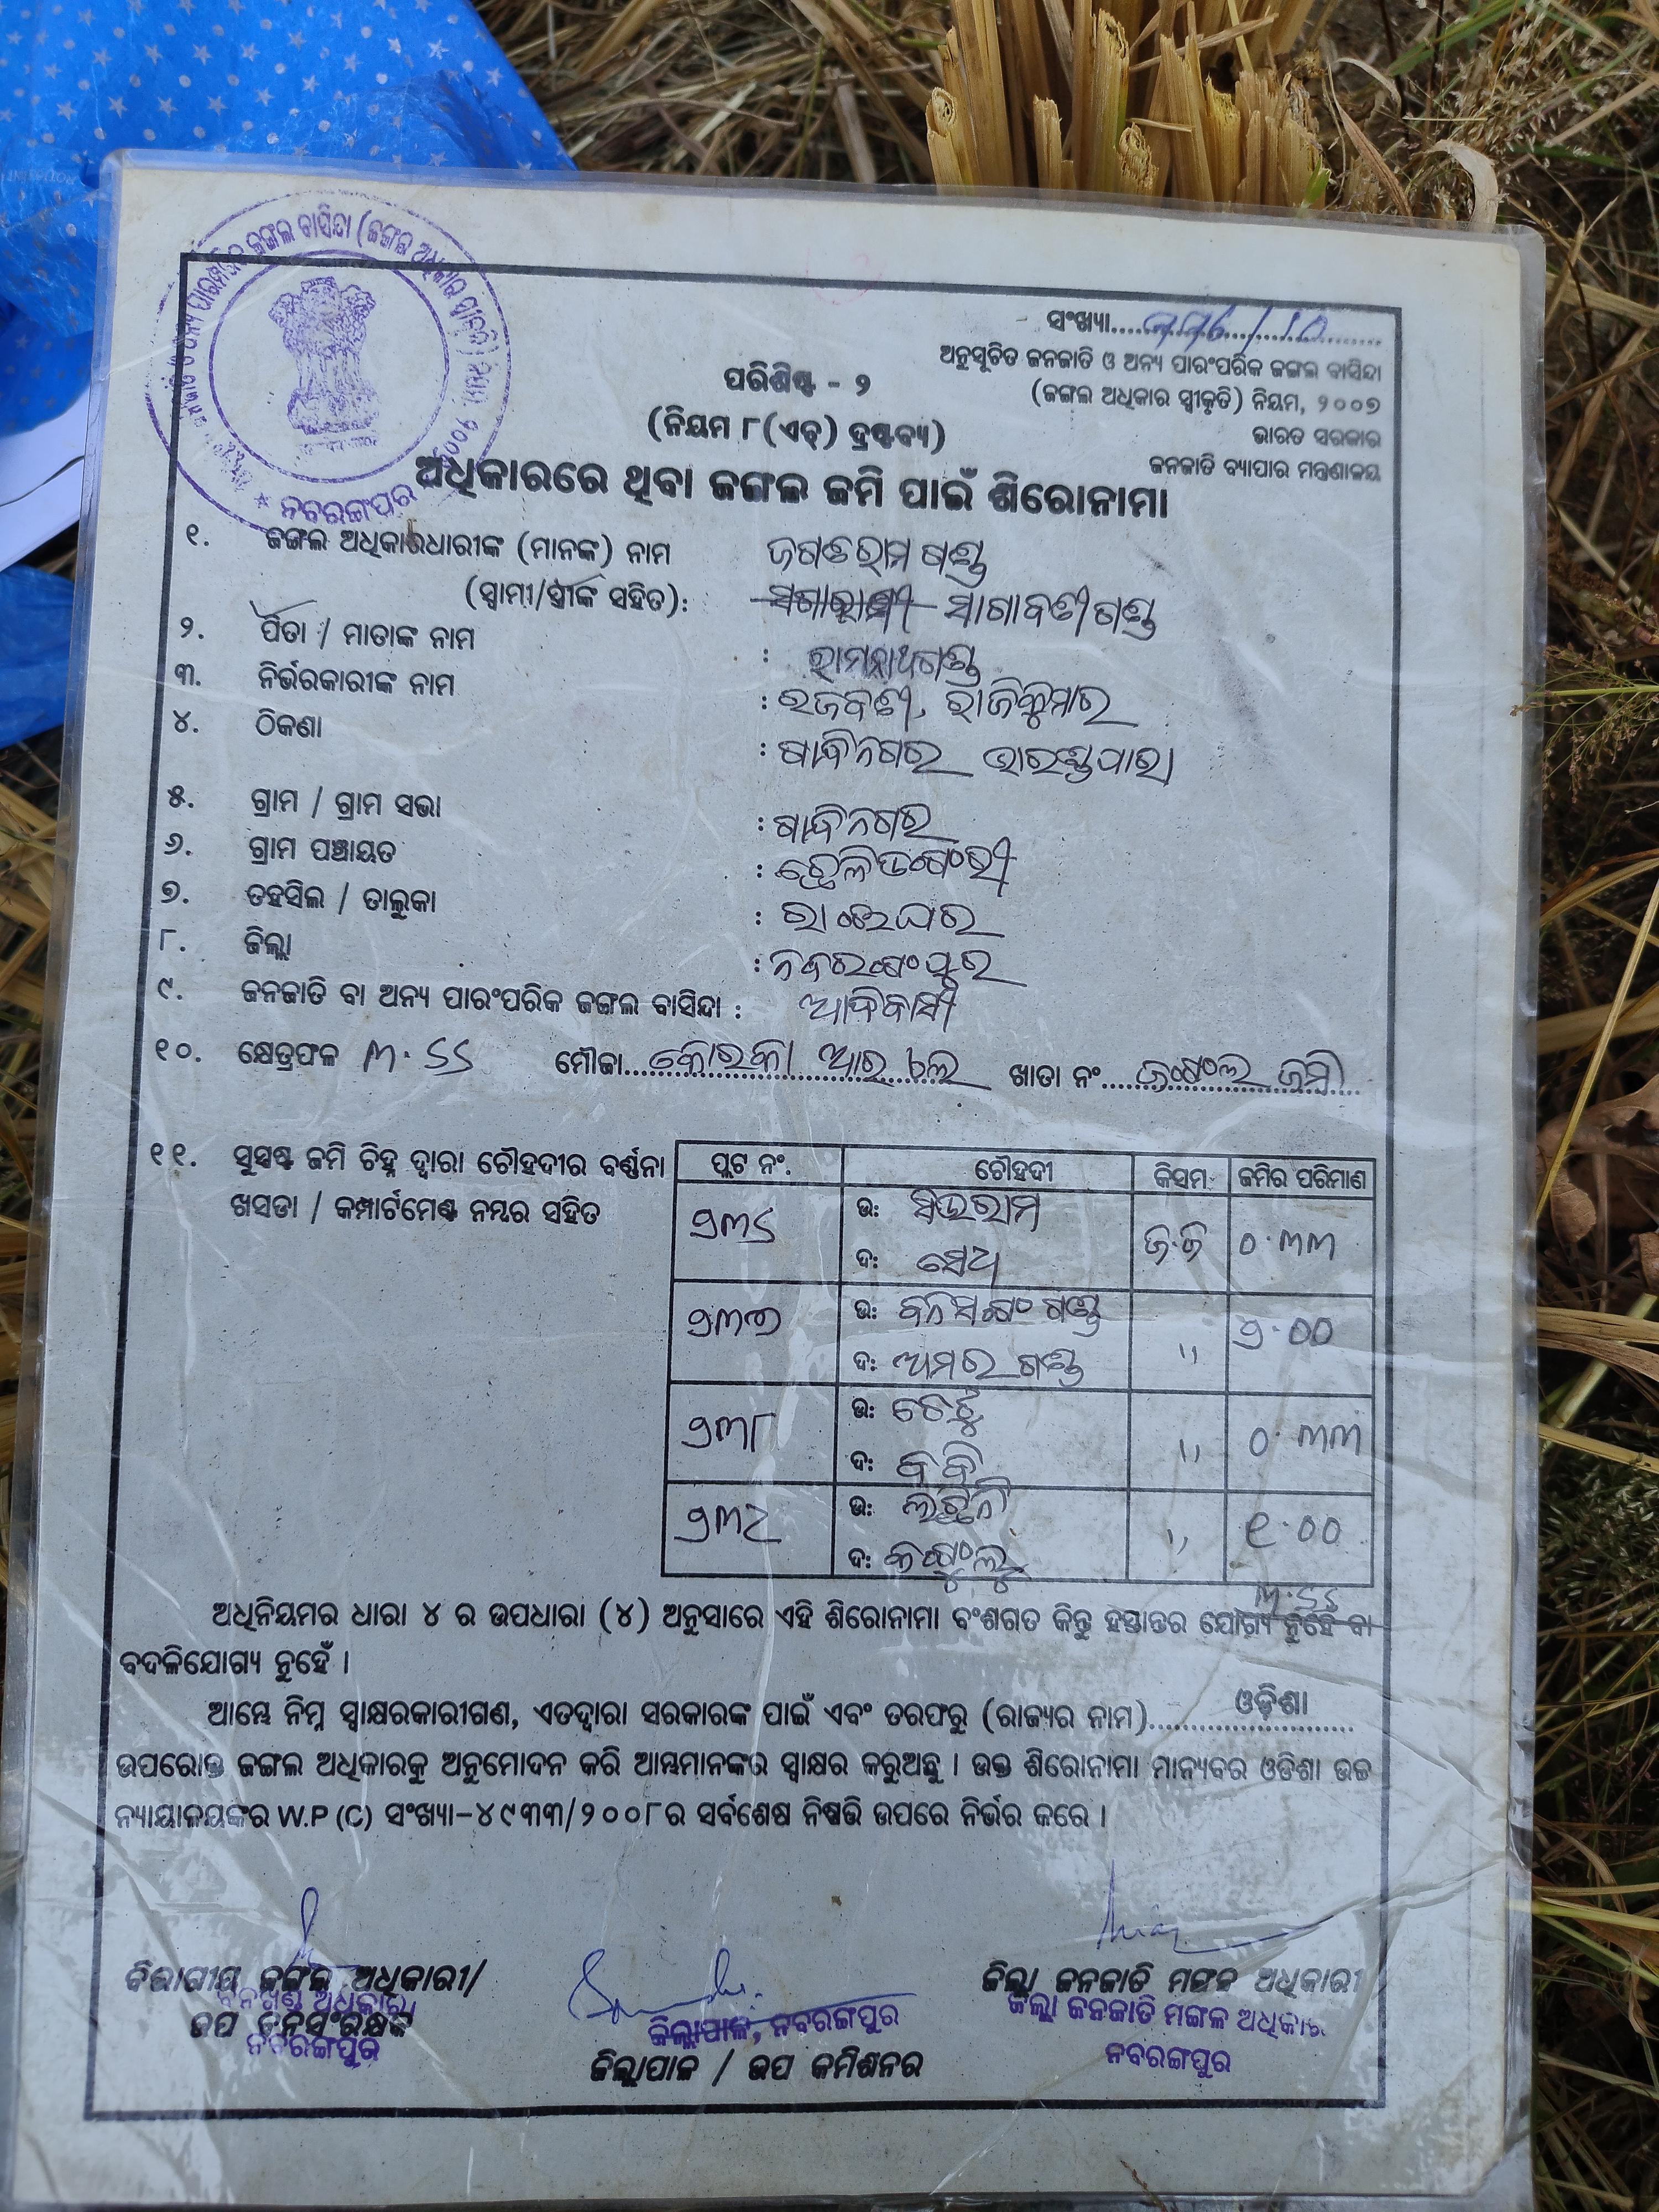 ସଂଖ୍ୟା
ଅନୁସୂଚିତ ଜନଜାତି ଓ ଅନ୍ୟ ପାରଂପରିକ ଜଙ୍ଗଲ ବାସିନ୍ଦା
(ଜଙ୍ଗଲ ଅଧିକାର ସ୍ୱୀକୃତି) ନିୟମ, ୨୦୦୭
ଭାରତ ସରକାର
ଜନଜାତି ବ୍ୟାପାର ମନ୍ତ୍ରଣାଳୟ
ପରିଶିଷ୍ଟ - ୨
(ନିୟମ ୮(ଏଚ୍) ଦ୍ରଷ୍ଟବ୍ୟ)
ଅଧିକାରରେ ଥିବା ଜଙ୍ଗଲ ଜମି ପାଇଁ ଶିରୋନାମା
ନବରଙ୍ଗପୁର
୧. ଜଙ୍ଗଲ ଅଧିକାରଧାରୀଙ୍କ (ମାନଙ୍କ) ନାମ ଜଗତରାମ ଗଣ୍ଡ
(ସ୍ୱାମୀ/ସ୍ତ୍ରୀଙ୍କ ସହିତ): ସାଗାବତୀ ଗଣ୍ଡ
୨. ପିତା / ମାତାଙ୍କ ନାମ : ରାମନାଥ ଗଣ୍ଡ
୩. ନିର୍ଭରକାରୀଙ୍କ ନାମ : ରଜବତୀ, ରାଜକୁମାର
୪. ଠିକଣା : ଗାନ୍ଧିନଗର ଭାରଣ୍ଡପାରା
୫. ଗ୍ରାମ / ଗ୍ରାମ ସଭା : ଗାନ୍ଧିନଗର
୬. ଗ୍ରାମ ପଞ୍ଚାୟତ :
୭. ତହସିଲ / ତାଲୁକା : ରାଇଘର
୮. ଜିଲ୍ଲା : ନବରଙ୍ଗପୁର
୯. ଜନଜାତି ବା ଅନ୍ୟ ପାରଂପରିକ ଜଙ୍ଗଲ ବାସିନ୍ଦା : ଆଦିବାସୀ
୧୦. କ୍ଷେତ୍ରଫଳ ୩.୬୬ ମୌଜା କୋରକା ଆର ଖାତା ନଂ ଜଙ୍ଗଲ ଜମି
୧୧. ସୁସ୍ପଷ୍ଟ ଜମି ଚିହ୍ନ ଦ୍ୱାରା ଚୌହଦୀର ବର୍ଣ୍ଣନା
ଖସଡା / କମ୍ପାର୍ଟମେଣ୍ଟ ନମ୍ବର ସହିତ
ପ୍ଲଟ ନଂ. ଚୌହଦୀ କିସମ ଜମିର ପରିମାଣ
୨୩୬ ଉ: ସିଉରାମ ଜ.ଜ ୦.୩୩
ଦ: ସେଧ
୨୩୭ ଉ: ବନିସଙ୍ଗ ଗଣ୍ଡ ,, ୨.୦୦
ଦ: ଅମର ଗଣ୍ଡ
୨୩୮ ଉ: ,, ୦.୩୩
ଦ:
୨୩୯ ଉ: ଲଛନି ,, ୧.୦୦
ଦ:
୩.୬୬
ଅଧିନିୟମର ଧାରା ୪ ର ଉପଧାରା (୪) ଅନୁସାରେ ଏହି ଶିରୋନାମା ବଂଶଗତ କିନ୍ତୁ ହସ୍ତାନ୍ତର ଯୋଗ୍ୟ ନୁହେଁ ବା
ବଦଳିଯୋଗ୍ୟ ନୁହେଁ ।
ଆମ୍ଭେ ନିମ୍ନ ସ୍ୱାକ୍ଷରକାରୀଗଣ, ଏତଦ୍ୱାରା ସରକାରଙ୍କ ପାଇଁ ଏବଂ ତରଫରୁ (ରାଜ୍ୟର ନାମ) ଓଡ଼ିଶା
ଉପରୋକ୍ତ ଜଙ୍ଗଲ ଅଧିକାରକୁ ଅନୁମୋଦନ କରି ଆମ୍ଭମାନଙ୍କର ସ୍ୱାକ୍ଷର କରୁଅଛୁ । ଉକ୍ତ ଶିରୋନାମା ମାନ୍ୟବର ଓଡିଶା ଉଚ୍ଚ
ନ୍ୟାୟାଳୟଙ୍କର W.P (C) ସଂଖ୍ୟା-୪୯୩୩/୨୦୦୮ର ସର୍ବଶେଷ ନିଷ୍ପତ୍ତି ଉପରେ ନିର୍ଭର କରେ ।
ବିଭାଗୀୟ ଜଙ୍ଗଲ ଅଧିକାରୀ/
ବନଖଣ୍ଡ ଅଧିକାରୀ
ଉପ ବନସଂରକ୍ଷକ
ନବରଙ୍ଗପୁର
ଜିଲ୍ଲାପାଳ, ନବରଙ୍ଗପୁର
ଜିଲ୍ଲାପାଳ / ଉପ କମିଶନର
ଜିଲ୍ଲା ଜନଜାତି ମଙ୍ଗଳ ଅଧିକାରୀ
ଜିଲ୍ଲା ଜନଜାତି ମଙ୍ଗଳ ଅଧିକାରୀ
ନବରଙ୍ଗପୁର